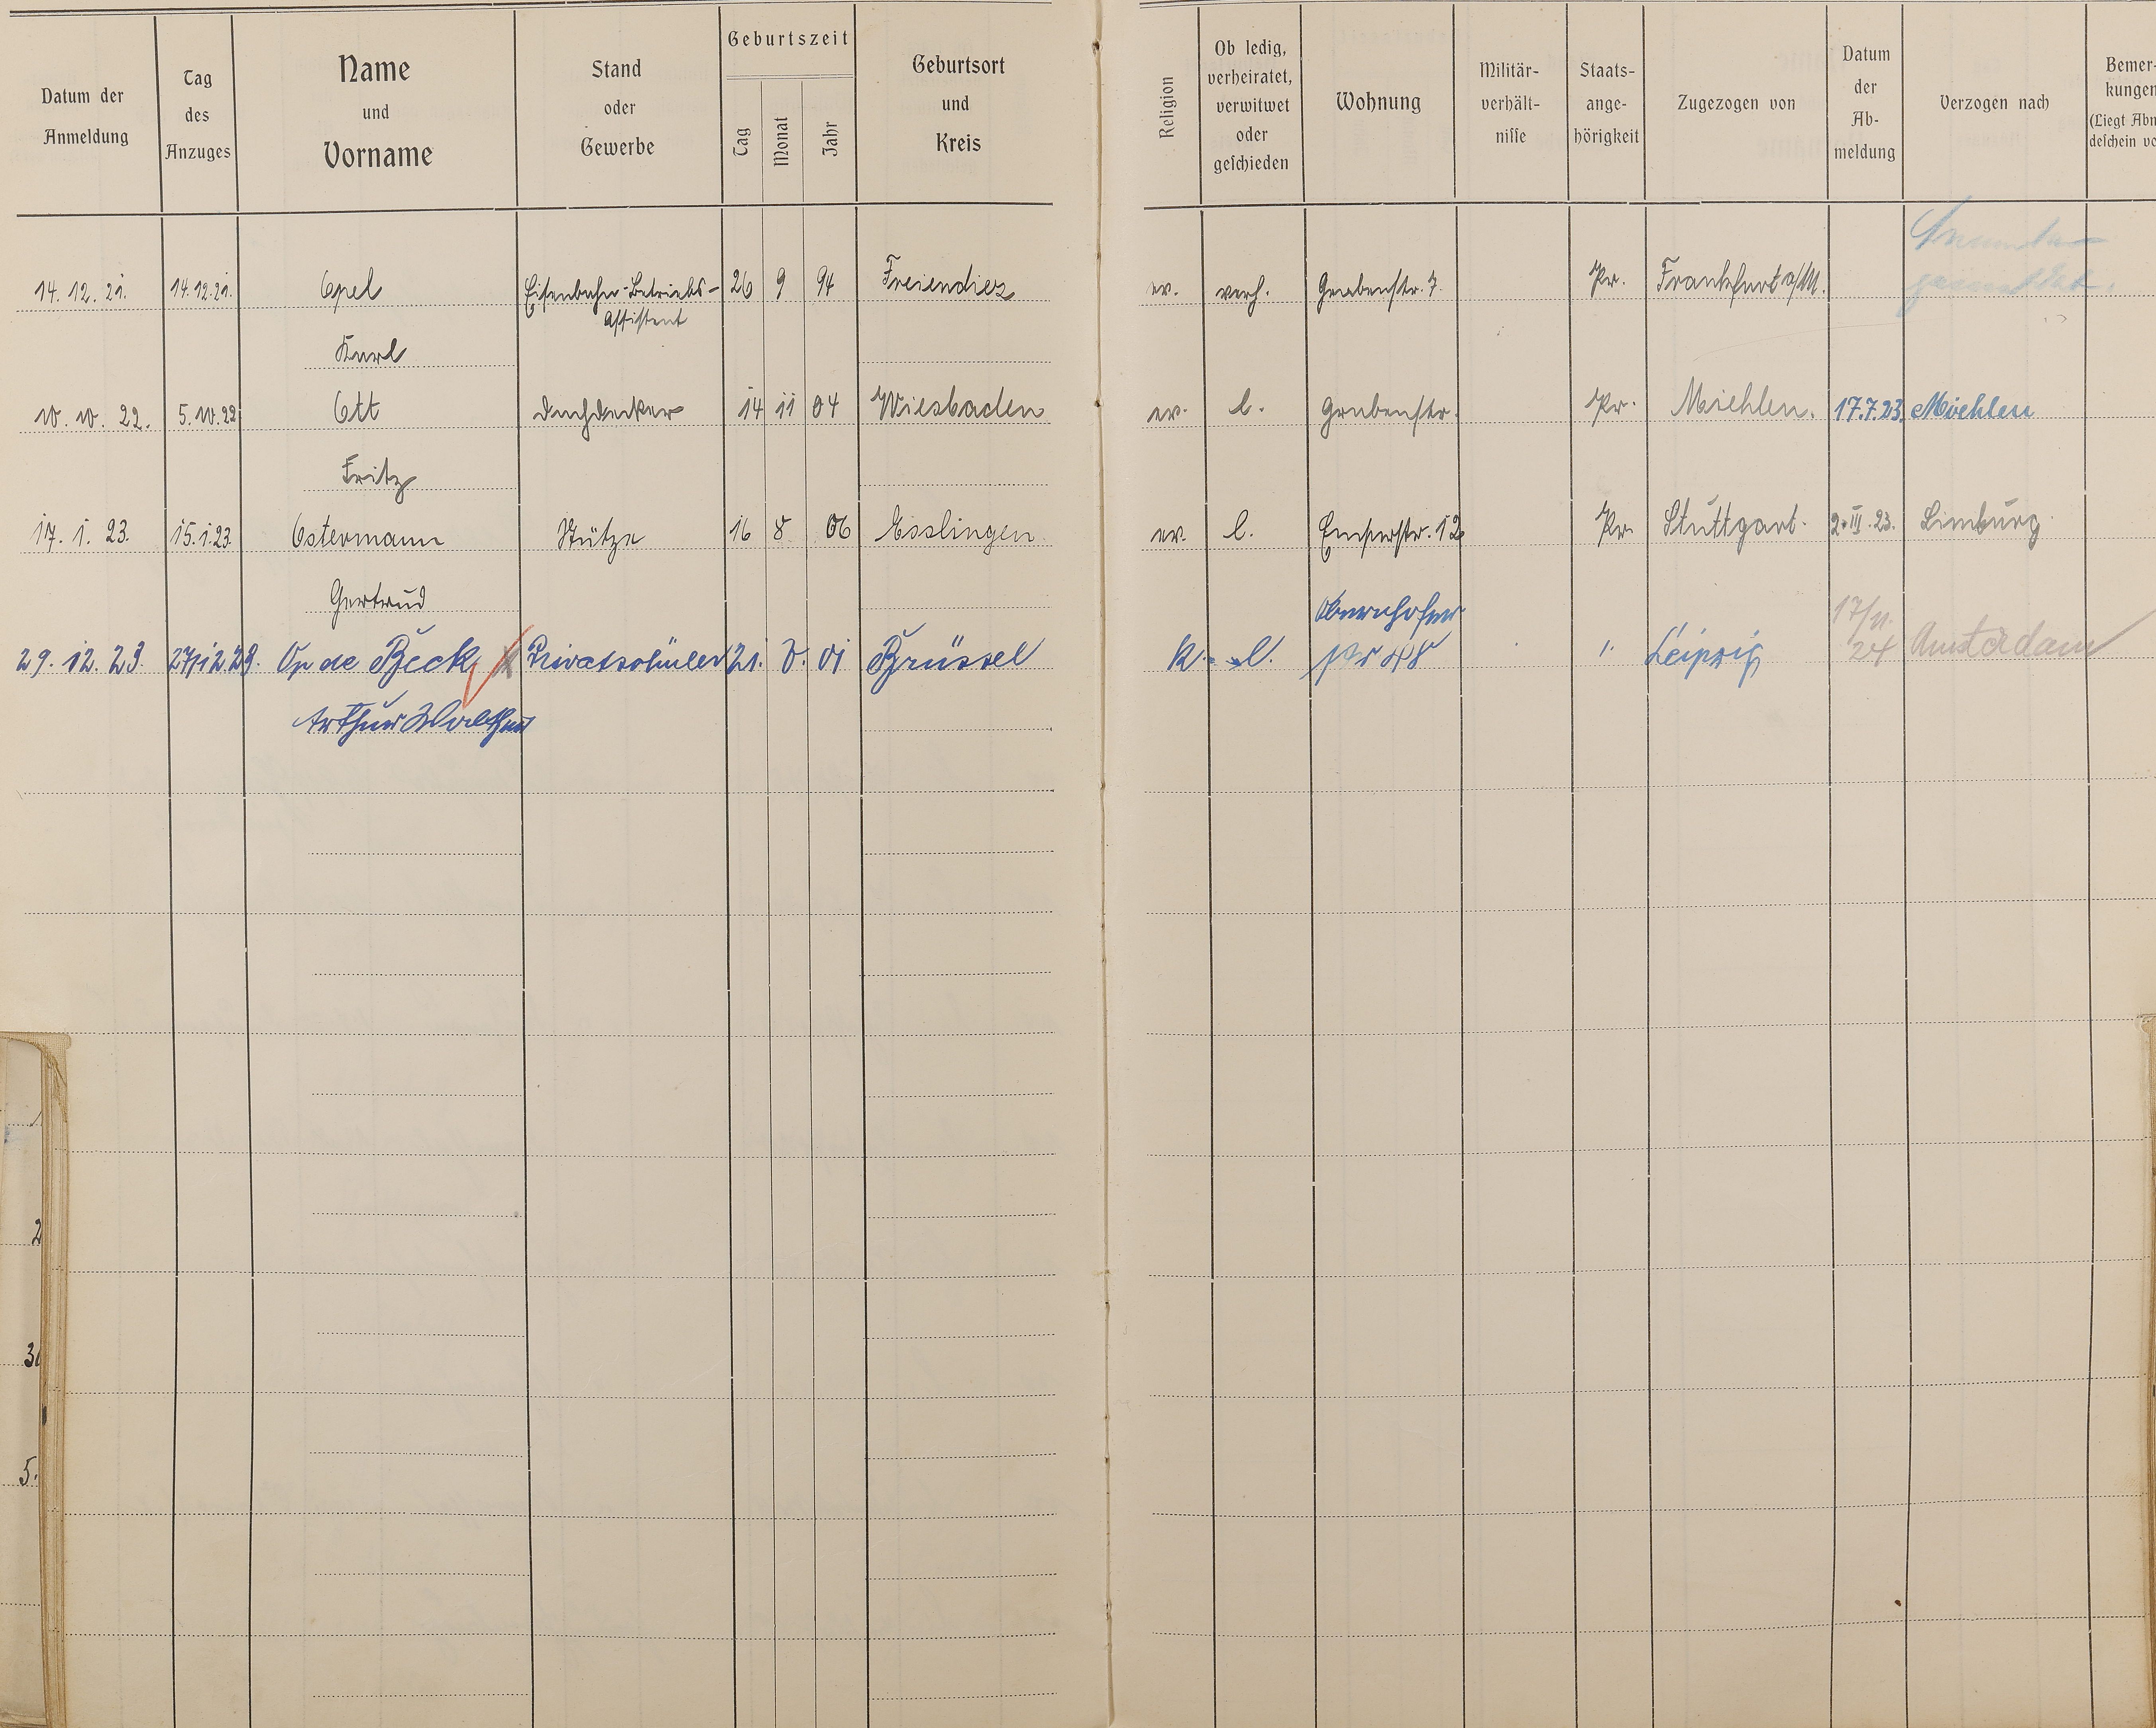 Datum der Anmeldung
Tag des Anzuges
Name und Vorname
Stand oder Gewerbe
Geburtszeit
Tag Monat Jahr
Geburtsort und Kreis
Religion
Ob ledig, verheiratet, verwitwet oder geschieden
Wohnung
Militär-verhält-nisse
Staats-ange-hörigkeit
Zugezogen von
Datum der Ab-meldung
Verzogen nach
Bemer-kungen
(Liegt
14. 12. 21. 14.12.21. Opel Eisenbahn-Betriebs- 26 9 94 Freiendiez ev. verh. Grabenstr. 7. Pr. Frankfurt a/M.
Assistent
Karl
10. 10. 22. 5.10.22 Ott Dachdecker 14 11 04 Wiesbaden ev. l. Grabenstr. Pr. Miehlen. 17.7.23. Miehlen
Fritz
17. 1. 23. 15.1.23. Ostermann Stütze 16 8 06 Esslingen ev. l. Emserstr. 12 Pr. Stuttgart. 2.III.23. Limburg
Gertrud
Obernhofer 17/11.
29. 12. 23. 27.12.23. Op de Beck Privatschüler 21. 8. 01 Brüssel K. l. " Leipzig 24 Amsterdam
Arthur Walther
2
5.